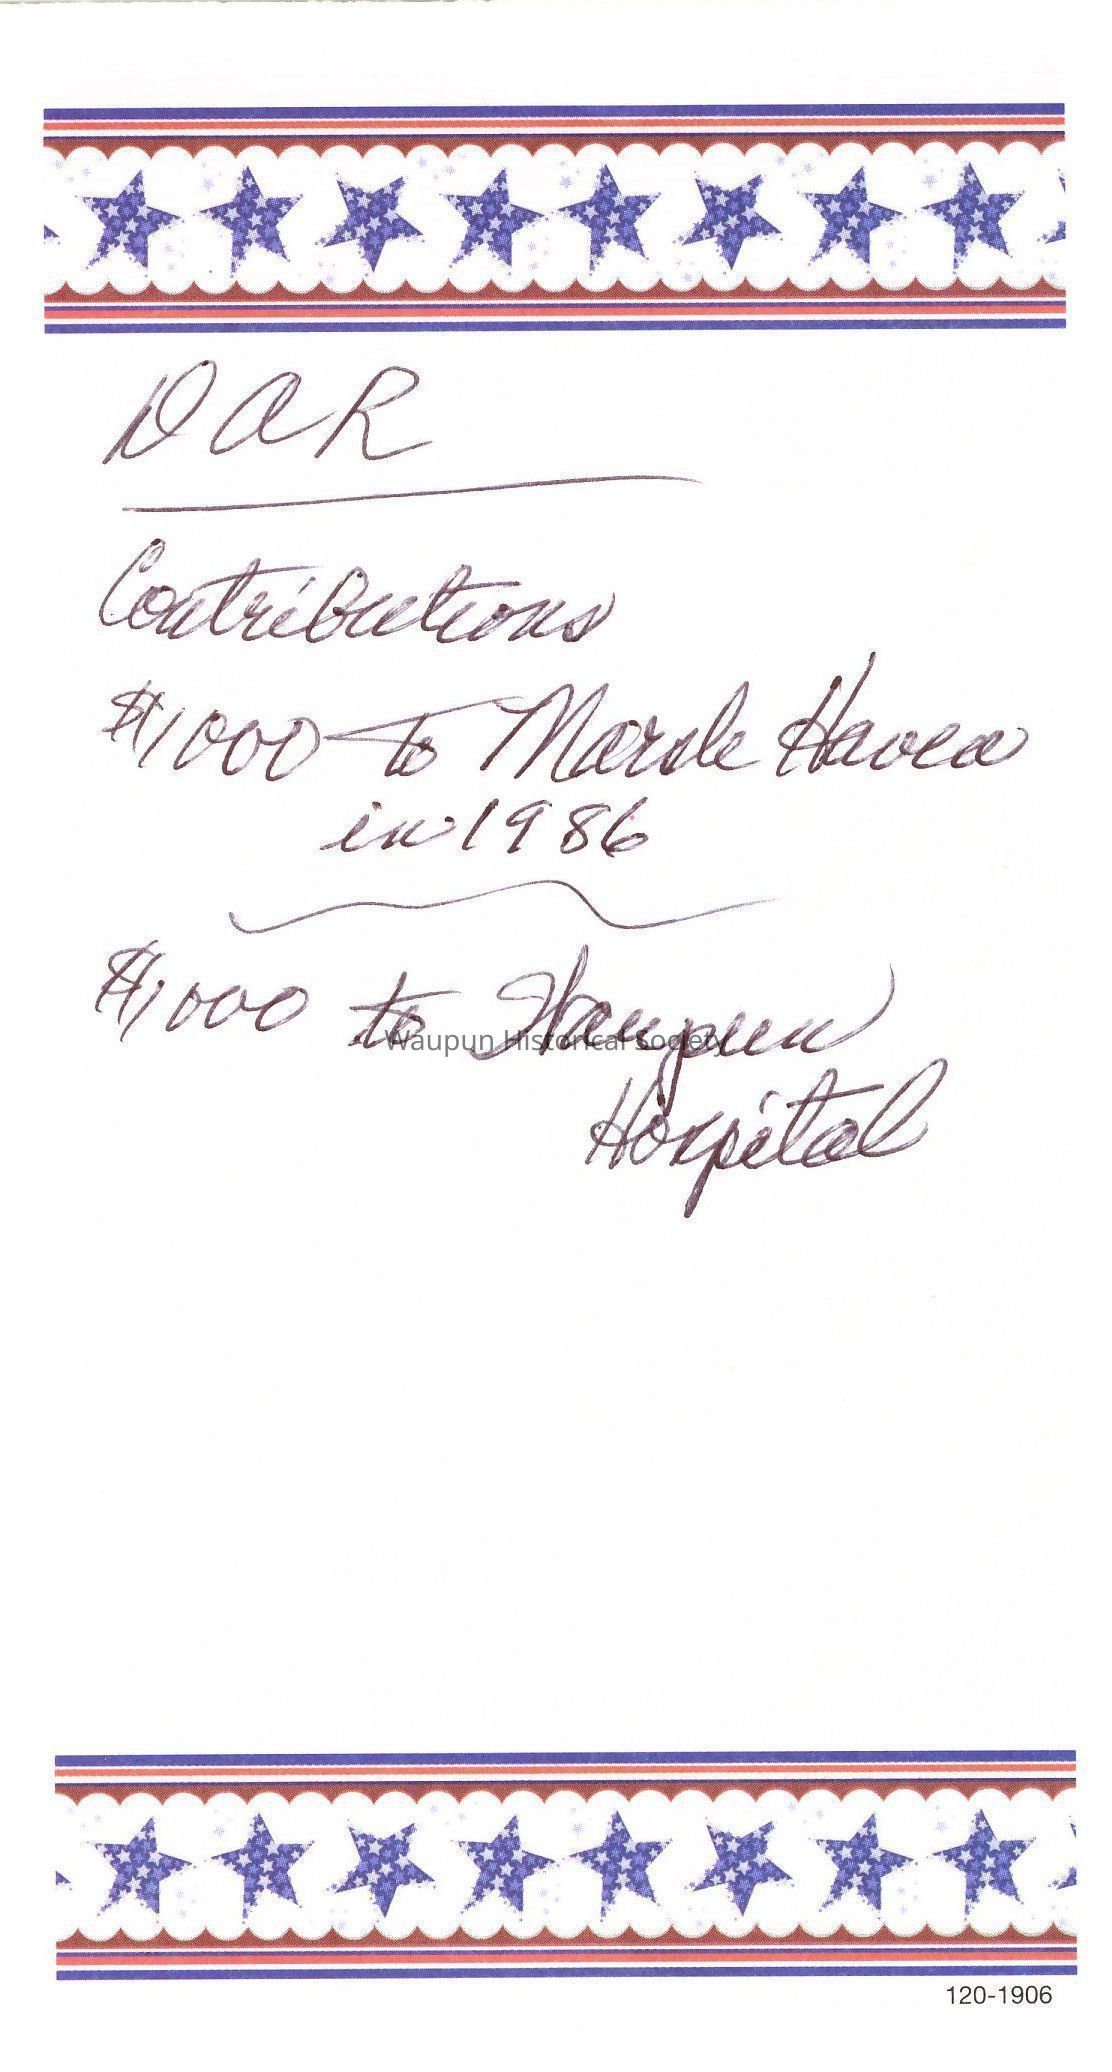 DAR
Contributions
$1000 to Marsh Haven
in 1986
$1,000 to Waupun
Waupun Historical Society
Hospital
120-1906